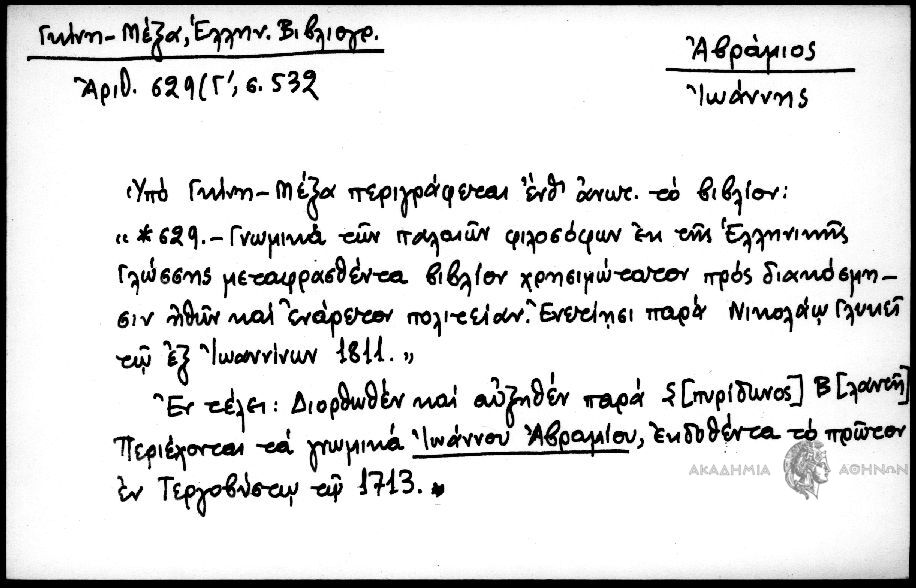 Γκίνη-Μέξα, Ἑλλην. Βιβλιογρ.
Ἀριθ. 629/Γ', σ. 532
Ἀβράμιος
Ἰωάννης
Ὑπό Γκίνη-Μέξα περιγράφεται ἔνθ' ἀνωτ. τό βιβλίον:
"*629.- Γνωμικά τῶν παλαιῶν φιλοσόφων ἐκ τῆς Ἑλληνικῆς
Γλώσσης μεταφρασθέντα βιβλίον χρησιμώτατον πρός διακόσμη-
σιν ἠθῶν καί ἐνάρετον πολιτείαν. Ἐνετίῃσι παρά Νικολάῳ Γλυκεῖ
τῷ ἐξ Ἰωαννίνων 1811."
Ἐν τέλει: Διορθωθέν καί αὐξηθέν παρά Σ[πυρίδωνος] Β[λαντῆ]
Περιέχονται τά γνωμικά Ἰωάννου Ἀβραμίου, ἐκδοθέντα τό πρῶτον
ἐν Τεργοβύστῳ τῷ 1713."
ΑΚΑΔΗΜΙΑ ΑΘΗΝΩΝ